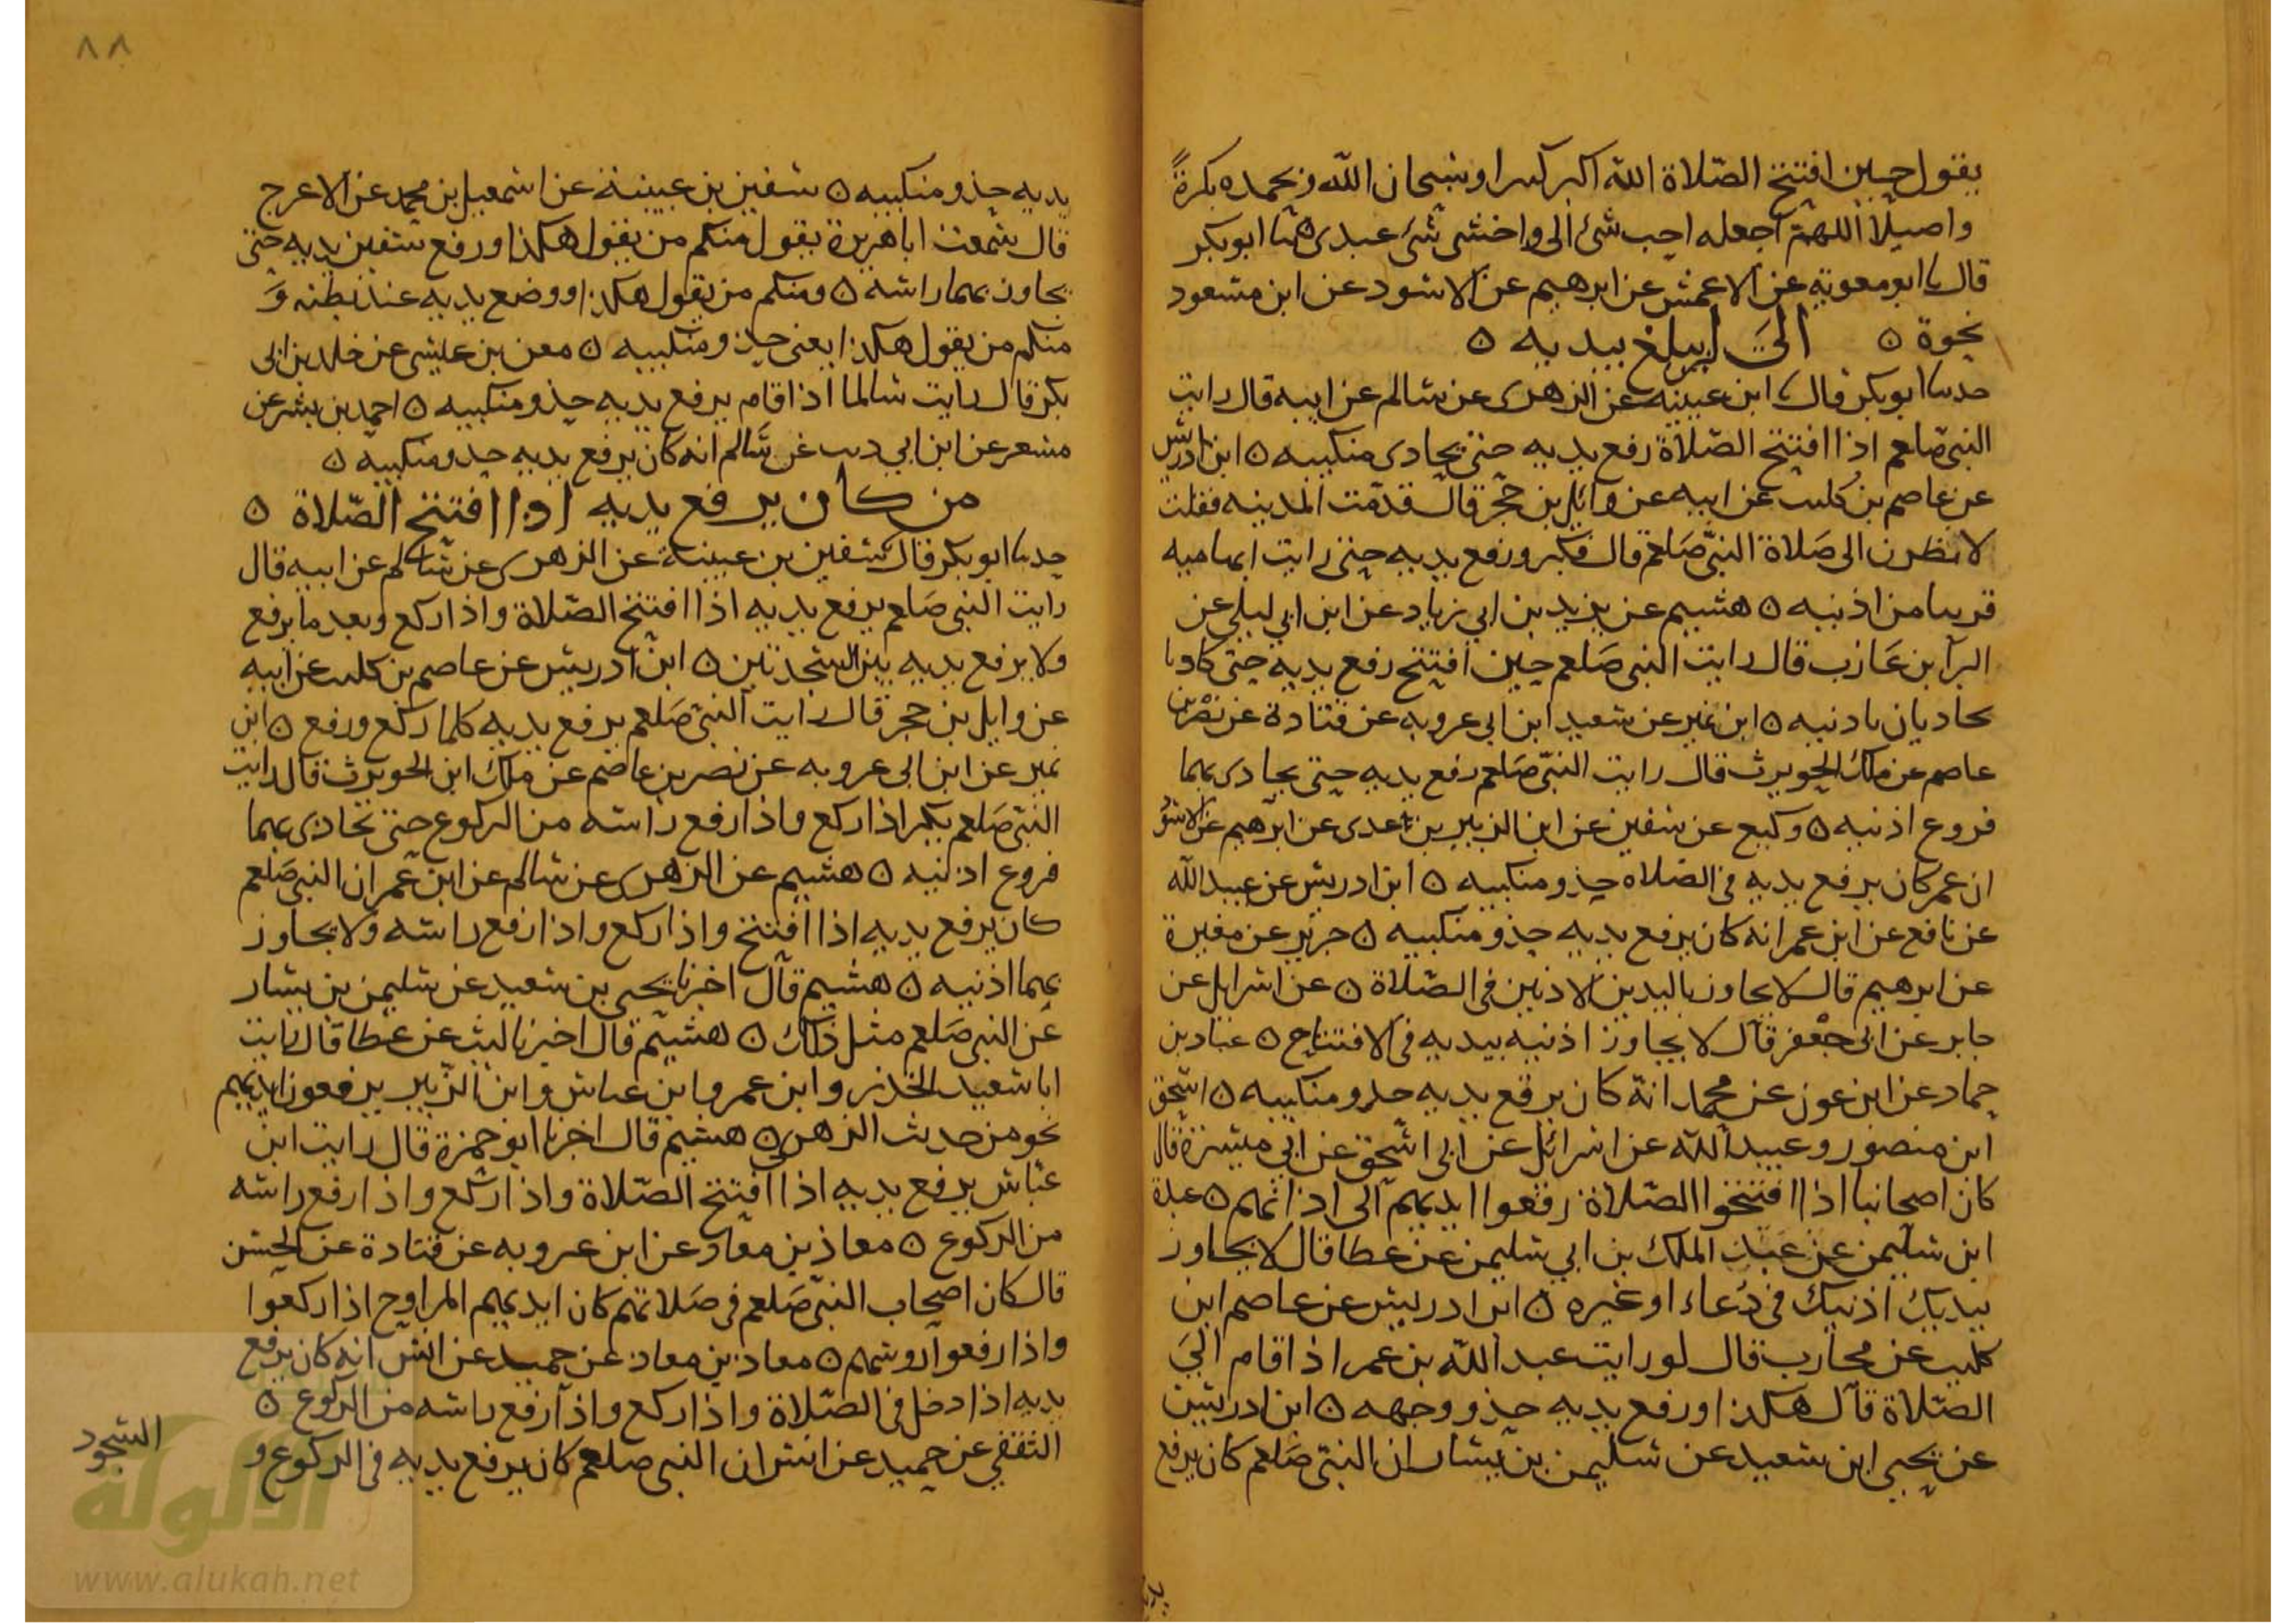 يقول حين افتتح الصّلاة الله اكبر كبيرا وسبحان الله وبحمده بكرةً
واصيلًا اللهمّ اجعله احب شئ الى واخشى شئ عبدى ٥ ثنا ابو بكر
قال نا ابو معوية عن الاعمش عن ابرهيم عن الاسود عن ابن مسعود
نحوه ٥ الى اين يبلغ بيديه ٥
حدثنا ابو بكر قال نا ابن عيينه عن الزهرى عن سالم عن ابيه قال رايت
النبى صلعم اذا افتتح الصّلاة رفع يديه حتى يحادى منكبيه ٥ ابن ادريس
عن عاصم بن كليب عن ابيه عن وائل بن حُجْر قال قدمت المدينه فقلت
لانظرن الى صَلاة النبىّ صَلعم قال فكبر ورفع يديه حتى رايت ابهاميه
قريبا من اذنيه ٥ هشيم عن يزيد بن ابي زياد عن ابن ابي ليلى عن
البرآ بن عَازب قال رايت النبى صَلعم حين افتتح رفع يديه حتى كادتا
تحاديان بادنيه ٥ ابن نمير عن سعيد ابن ابى عروبه عن قتادة عن نصْر بن
عاصم عن ملك الحويرث قال رايت النبىّ صَلعم رفع يديه حتى يحادى بهما
فروع اذنيه ٥ وكيع عن سفين عن ابن الزبير بن عدى عن ابرهيم عن الاسوَد
ان عمر كان يرفع يديه فى الصّلاه حذو منكبيه ٥ ابن ادريس عن عبيد الله
عن نافع عن ابن عمر انه كان يرفع يديه حذو منكبيه ٥ جرير عن مغيرة
عن ابرهيم قال لا يجاوز باليدين الاذنين فى الصّلاة ٥ عن اسرايل عن
جابر عن ابى جعْفر قال لا يجاوز اذنيه بيديه فى الافتتاح ٥ عباد بن
حماد عن ابن عون عن محمد انهّ كان يرفع يديه حذو منكبيه ٥ اسحق
ابن منصور وعبيد الله عن اسرائل عن ابى اسحق عن ابي ميسرة قال
كان اصحابنا اذا افتتحوا الصّلاة رفعوا ايديهم الى اذانهم ٥ عبدة
ابن سليمن عن عبد الملك بن ابي سليمن عن عطا قال لا يجاوز
بيديك اذنيك فى دُعاء او غيره ٥ ابن ادريس عن عاصم ابن
كليب عن محارب قال لو رايت عبد الله بن عمر اذا قام الىَ
الصّلاة قال هكذا ورفع يديه حذو وجهه ٥ ابن ادريس
عن يحيى ابن سعيد عن سليمن بن يسار ان النبىّ صَلعم كان يرفع
٨٨
يديه حذو منكبيه ٥ سفين بن عيينة عن اسمعيل بن محمد عن الاعرج
قال سمعت ابا هريرة يقول منكم من يقول هكذا ورفع سفين يديه حتى
يجاوز بهما راسه ٥ ومنكم من يقول هكذا ووضع يديه عند بطنه وَ
منكم من يقول هكذا يعنى حذو منكبيه ٥ معن بن عيسى عن خلد بن ابى
بكر قال رايت سالما اذا قام يرفع يديه حذو منكبيه ٥ احمد بن بشر عن
مسعر عن ابن ابي ديب عن سَالم انه كان يرفع يديه حذو منكبيه ٥
من كان يرفع يديه اذا افتتح الصّلاة ٥
حدثنا ابو بكر قال سفين بن عيينة عن الزهرى عن سَالم عن ابيه قال
رايت النبى صَلعم يرفع يديه اذا افتتح الصّلاة واذا ركع وبعد ما يرفع
ولا يرفع يديه بين السّجدتين ٥ ابن ادريس عن عاصم بن كليب عن ابيه
عن وايل بن حجر قال رايت النبىّ صَلعم يرفع يديه كلما ركع ورفع ٥ ابن
نمير عن ابن ابى عروبه عن نصر بن عاصم عن ملك ابن الحويرث قال رايت
النبىّ صَلعم يكبر اذا ركع واذا رفع راسه من الركوع حتى يحاذى بهما
فروع اذنيه ٥ هشيم عن الزهرى عن سالم عن ابن عمر ان النبى صَلعم
كان يرفع يديه اذا افتتح واذا ركع واذا رفع راسه ولا يجاوز
بهما اذنيه ٥ هشيم قال اخبرنا يحيى بن سعيد عن سليمن بن يسار
عن النبى صَلعم مثل ذلك ٥ هشيم قال اخبرنا ليث عن عطا قال رايت
ابا سعيد الخدرى وابن عمر وابن عباس وابن الزّبير يرفعون ايديهم
نحو من حديث الزهرى ٥ هشيم قال اخبرنا ابو حمزة قال رايت ابن
عبّاس يرفع يديه اذا افتتح الصّلاة واذا ركع واذا رفع راسه
من الركوع ٥ معاذ بن معاذ عن ابن عروبه عن قتادة عن الحسن
قال كان اصحاب النبىّ صَلعم فى صَلاتهم كان ايديهم المراوح اذا ركعوا
واذا رفعوا روسهم ٥ معاذ بن معاذ عن حميد عن انس انه كان يرفع
يديه اذا دخل فى الصّلاة واذا ركع واذا رفع راسه من الركوع ٥
الثقفي عن حميد عن انس ان النبى صلعم كان يرفع يديه فى الركوع و
السّجود
الألوكة
www.alukah.net